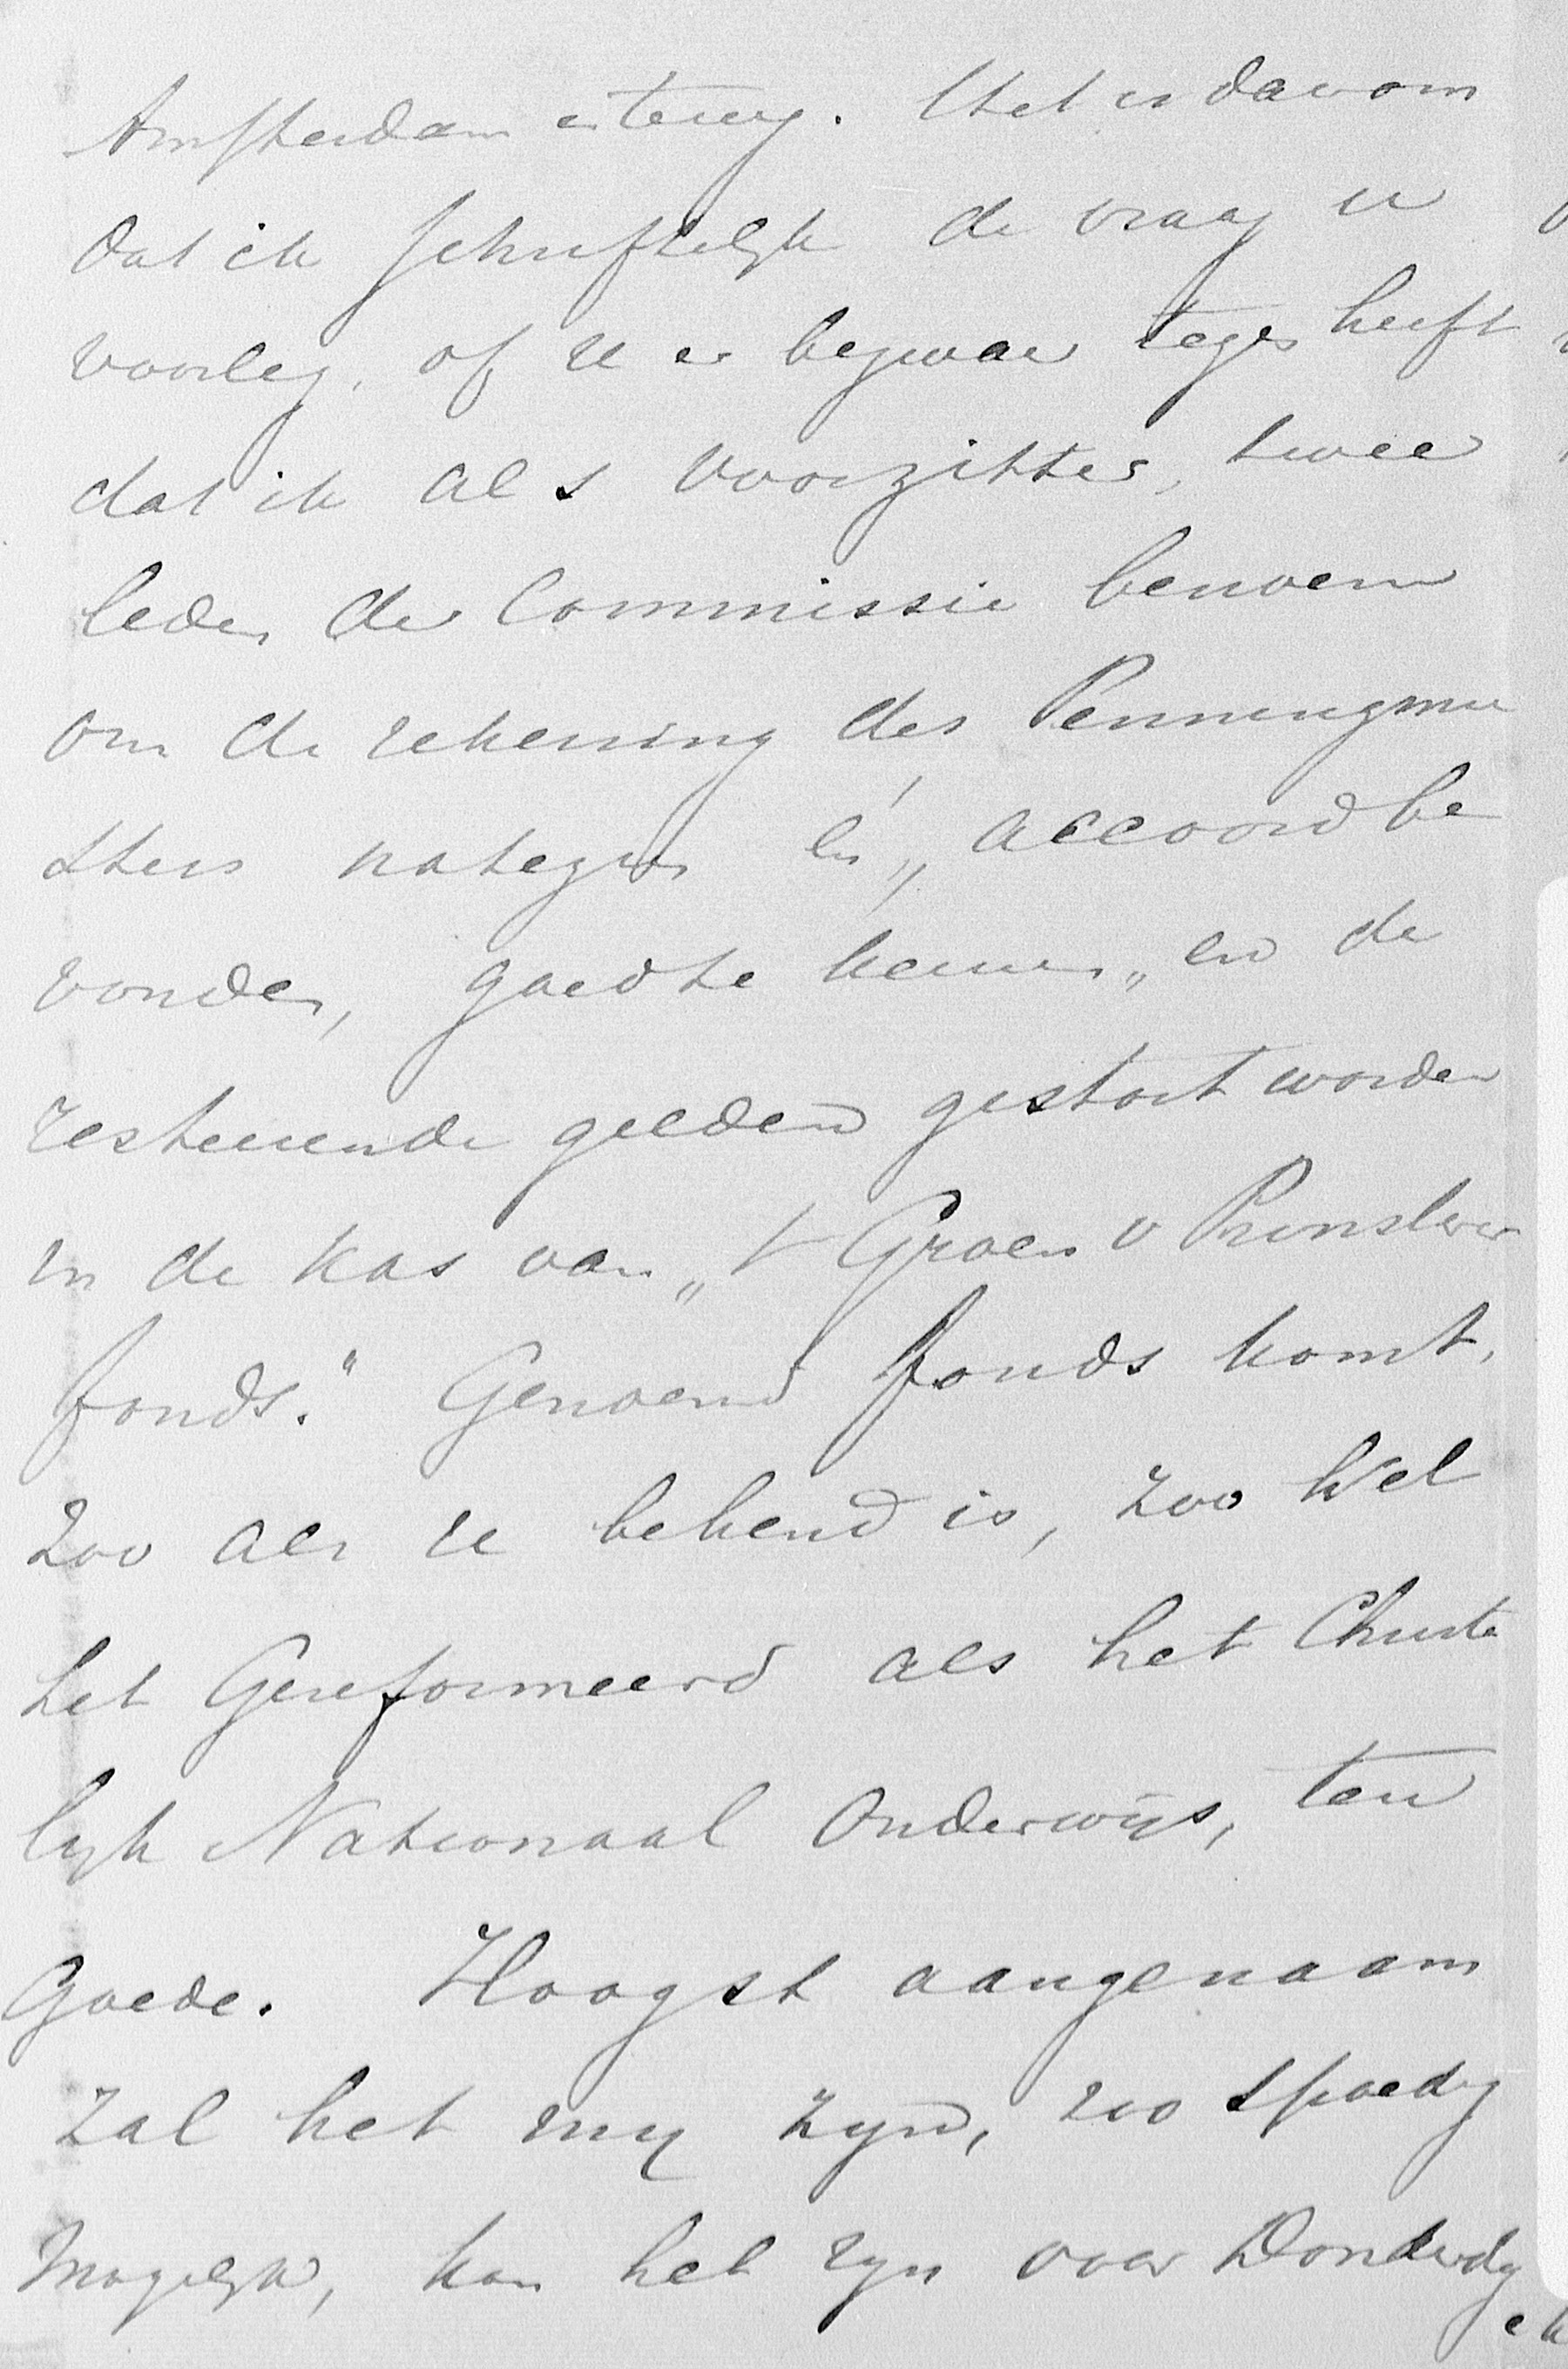 Amsterdam is terug. Het is daarom
dat ik schriftelijk de vraag u
voorleg, of U er bezwaar tegen heeft
dat ik als Voorzitter, twee
leden der Commissie benoem
om de rekening des Penningmee
sters nategaan en, „accoord be
vonden, goedte keuren„ en de
resteerende gelden gestort worden
in de kas van „'t Groen v Prinsterer
fonds." Genoemd fonds komt,
zoo als U bekend is, zoo wel
het Gereformeerd als het Christe
lijk Nationaal Onderwijs, ten
Goede. Hoogst aangenaam
zal het mij zijn, zoo spoedig
mogelijk, kan het zijn voor Donderdag